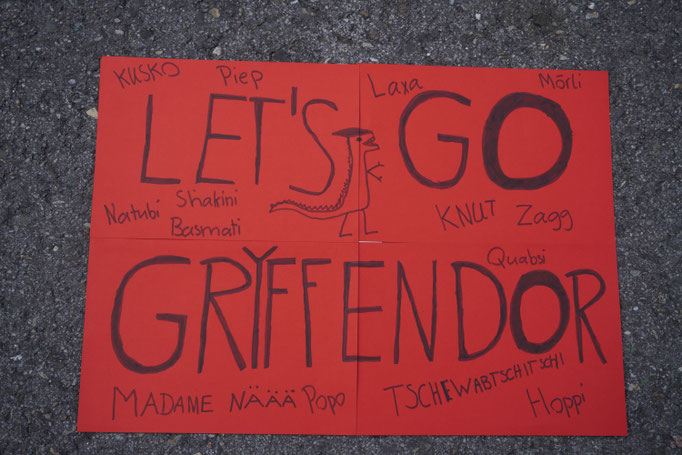 KUSKO Piep Laxa Mörli
LET'S GO
Natubi Shakini KNUT Zagg
Basmati
Quabsi
GRYFFENDOR
MADAME NÄÄÄ Popo TSCHEWABTSCHITSCHI
Hoppi